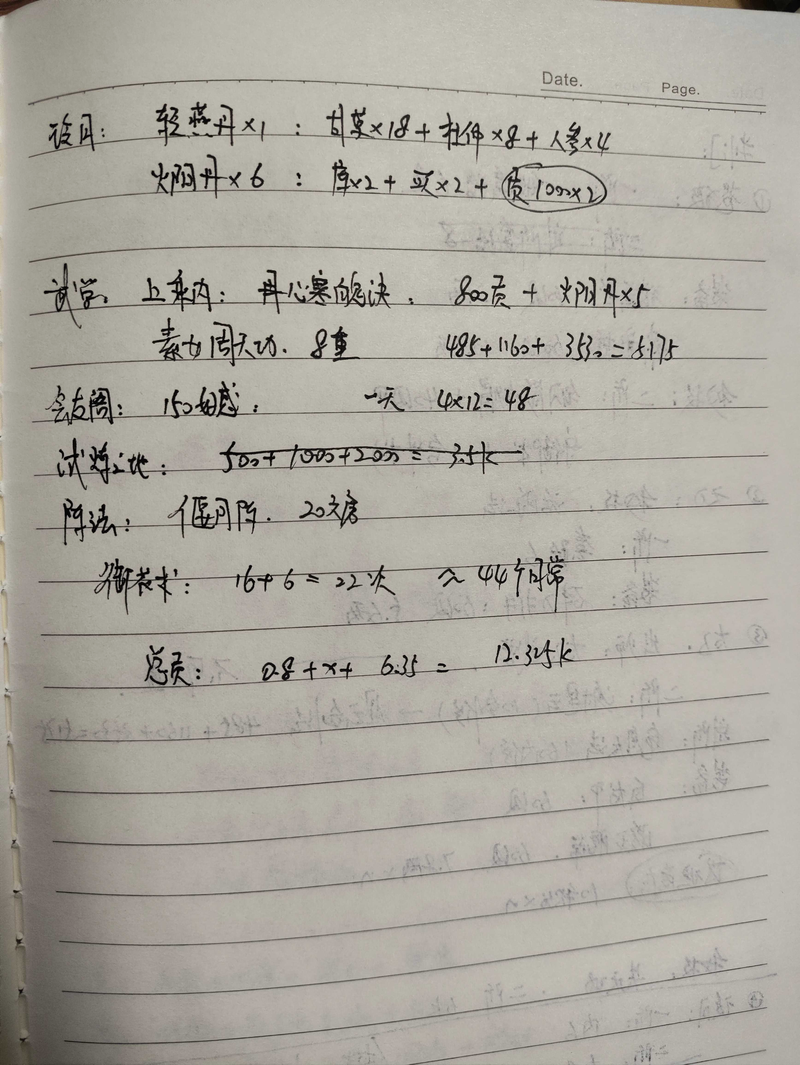 Date.
Page.
轻燕丹×1 : 甘草×18 + 杜仲×8 + 人参×4
火阴丹×6 : 库×2 + 买×2 + 贡1000×2
试学。上乘内: 丹心寒的决. 800贡 + 火阴丹×5
素女周天功. 8重 485+1160+3530=5175
会友阁: 150好感, 一天 4×12=48
试炼之地: 500+1000+2000=3.5k
阵法: 偃月阵. 20
术: 16+6=22次 ≈ 44个日常
总贡: 0.8+x+6.35= 12.325k